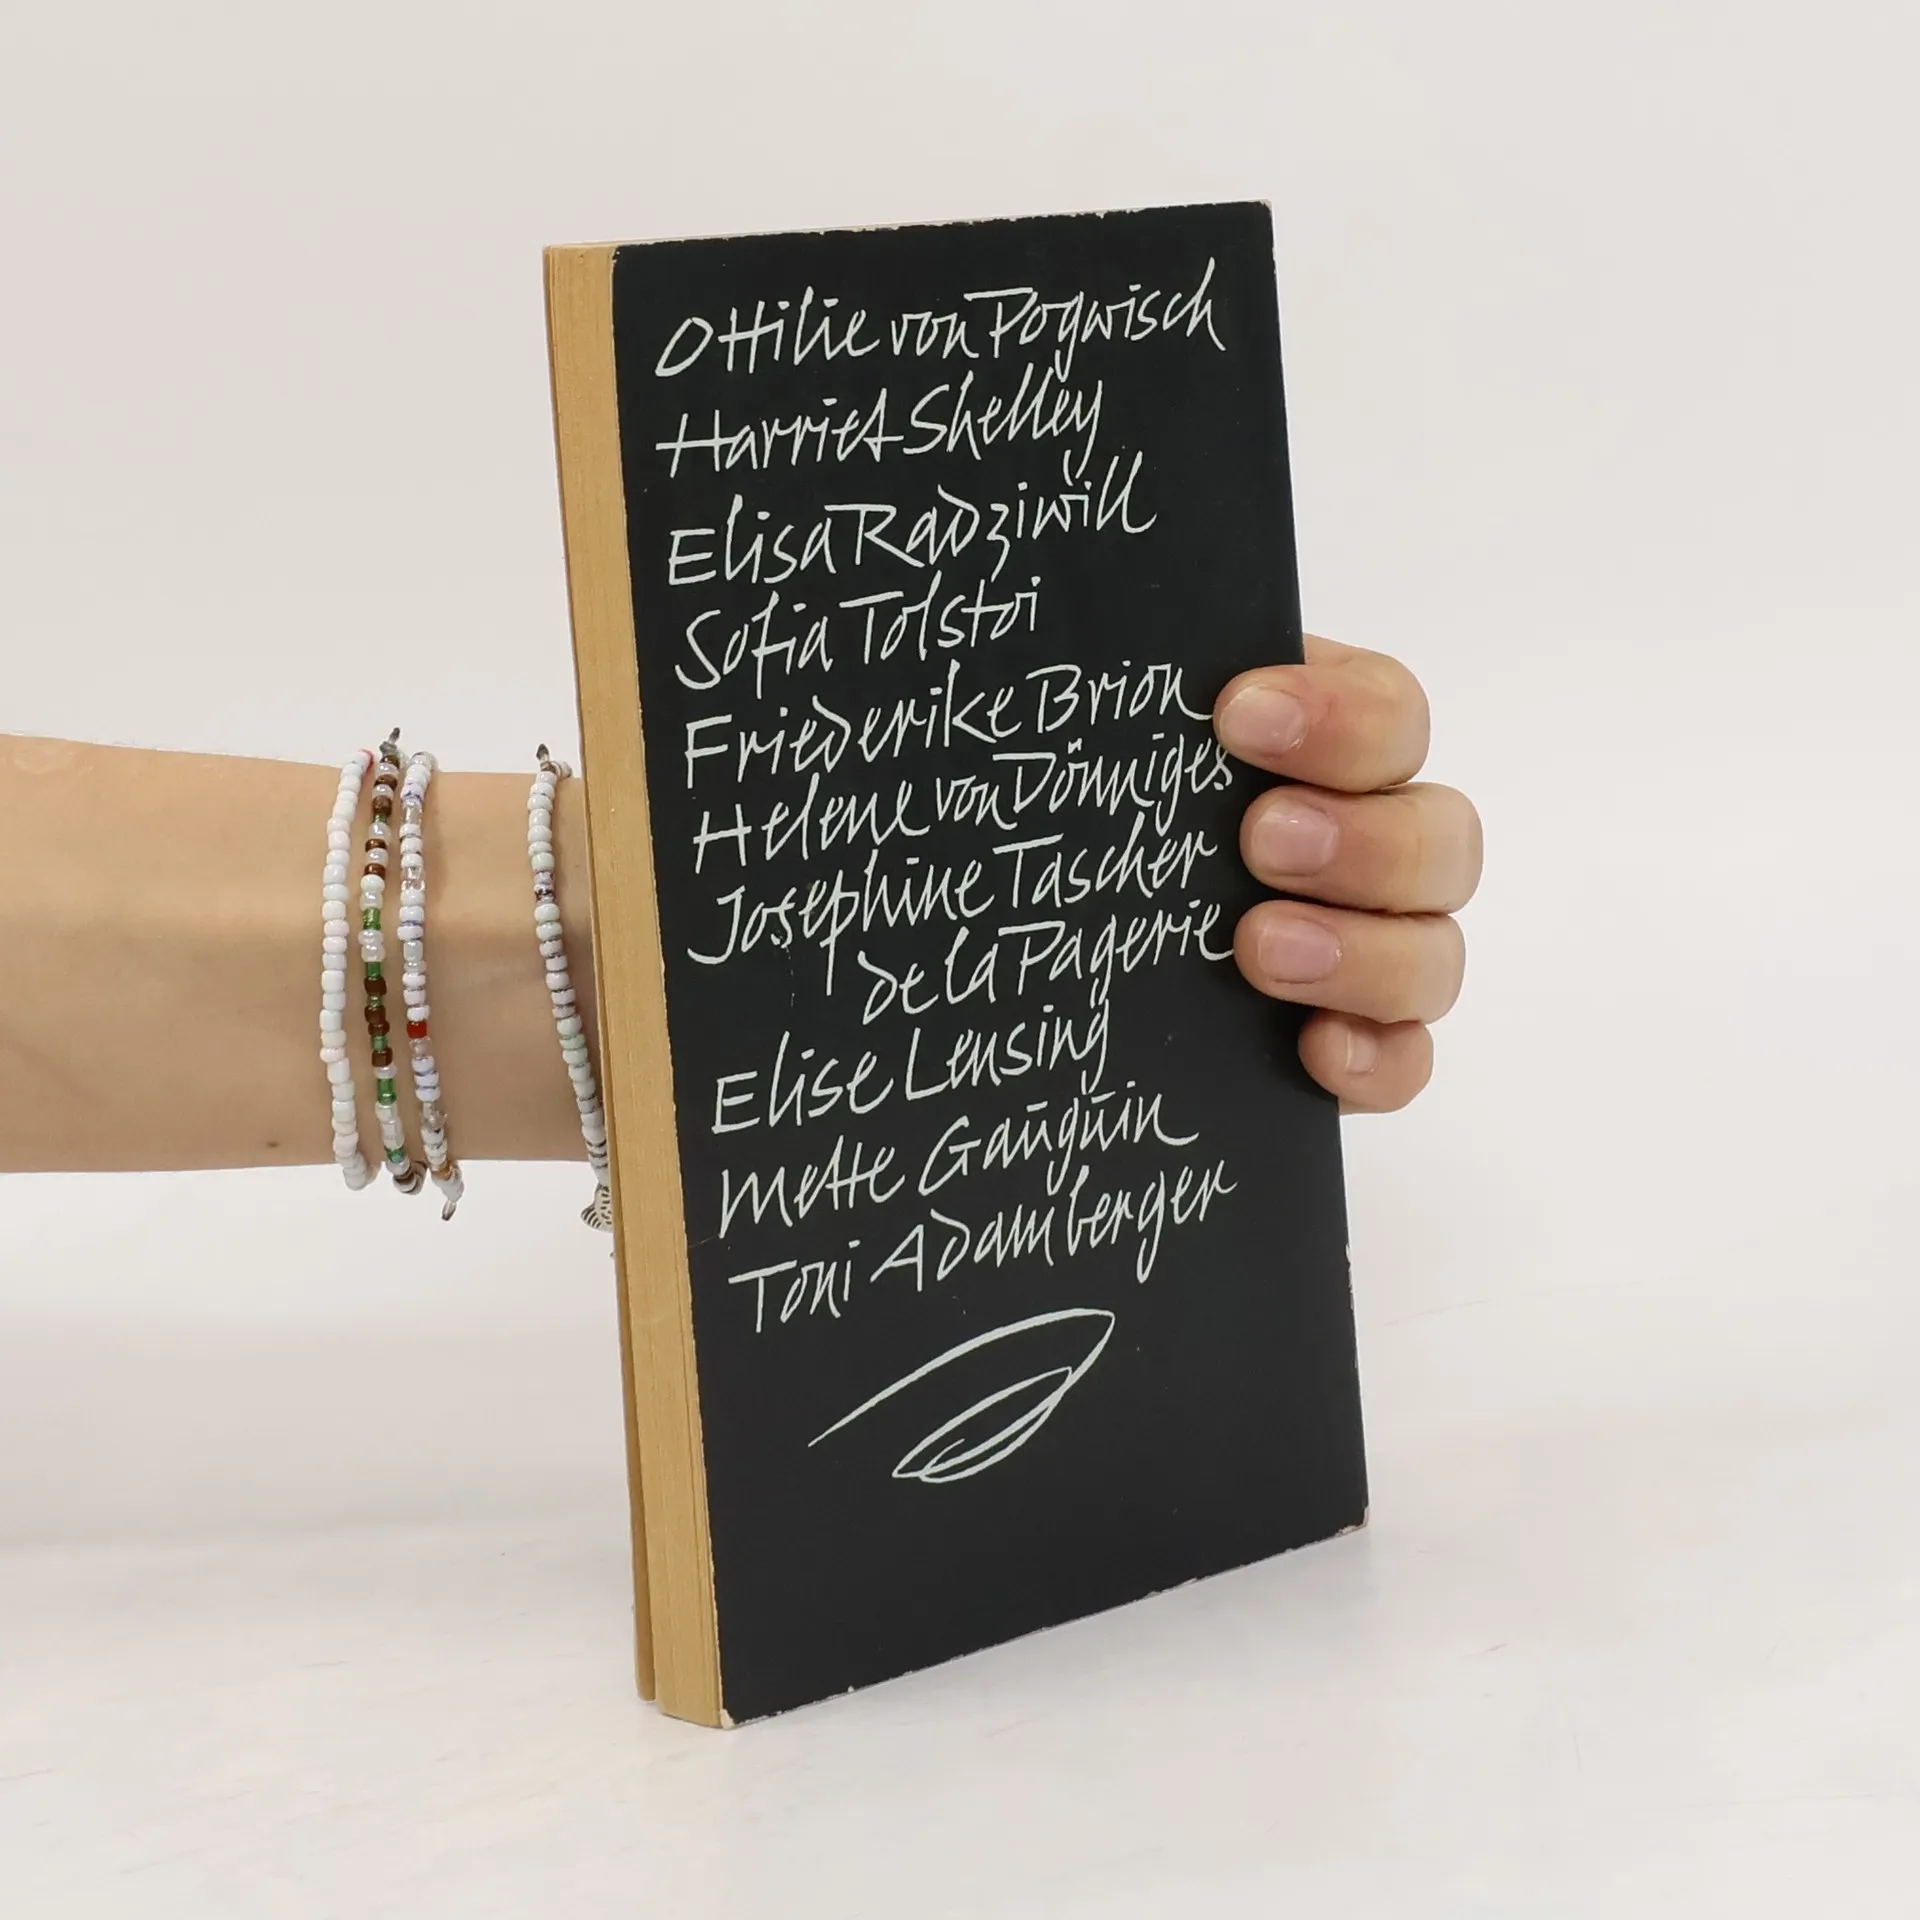 Ottilie von Pogwisch
Harriet Shelley
Elisa Radziwill
Sofia Tolstoi
Friederike Brion
Helene von Dönniges
Josephine Tascher
de la Pagerie
Elise Lensing
Mette Gauguin
Toni Adamberger